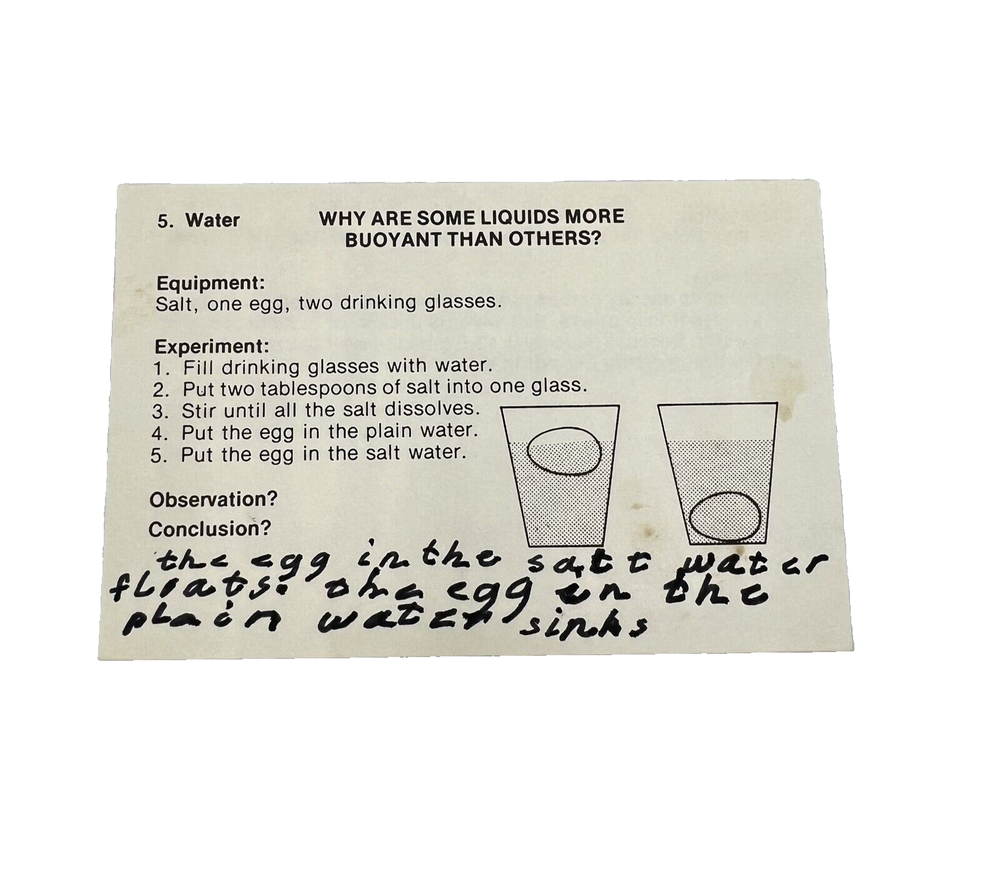 5. Water WHY ARE SOME LIQUIDS MORE
BUOYANT THAN OTHERS?
Equipment:
Salt, one egg, two drinking glasses.
Experiment:
1. Fill drinking glasses with water.
2. Put two tablespoons of salt into one glass.
3. Stir until all the salt dissolves.
4. Put the egg in the plain water.
5. Put the egg in the salt water.
Observation?
Conclusion?
the egg in the satt water
floats. the egg in the
plain water sinks